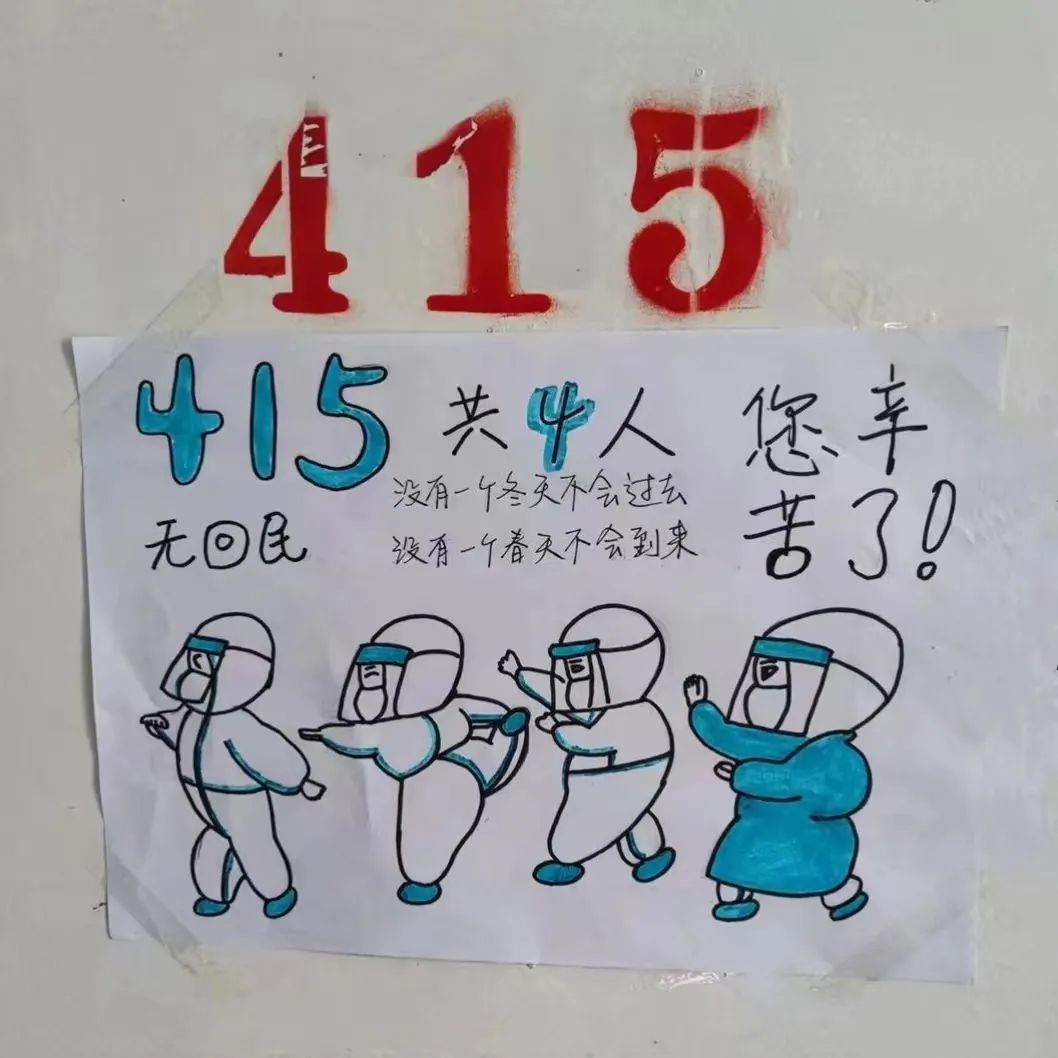 415
415 共4人
无回民
没有一个冬天不会过去
没有一个春天不会到来
您辛
苦了!